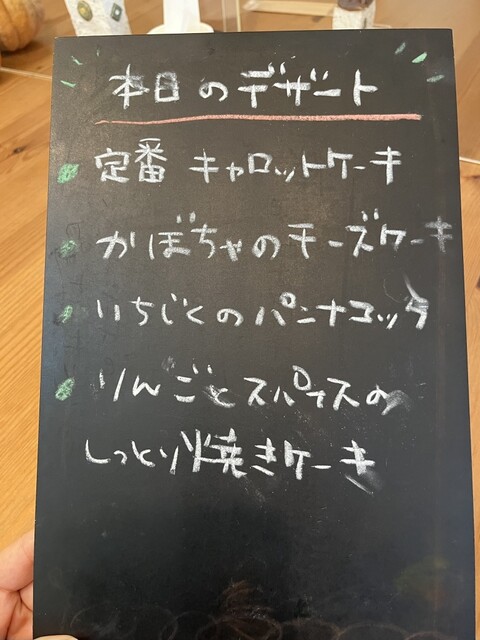 本日のデザート
定番 キャロットケーキ
かぼちゃのチーズケーキ
いちじくのパンナコッタ
りんごとスパイスの
しっとり焼きケーキ